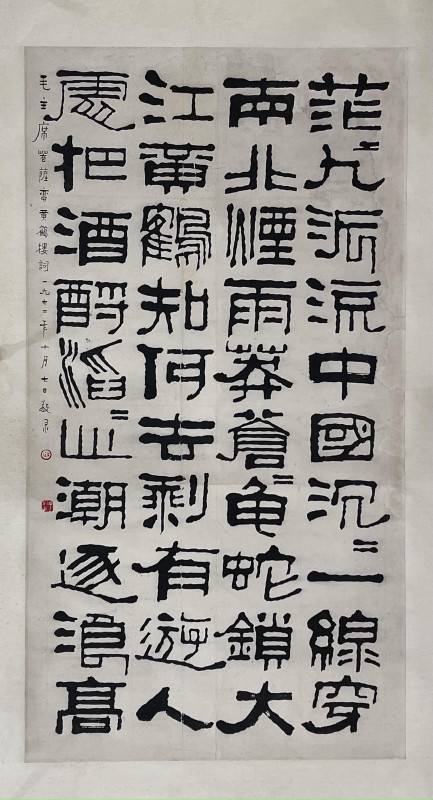 茫〻九派流中國沉〻一線穿
南北煙雨莽蒼〻龜蛇鎖大
江黃鶴知何去剩有遊人
處把酒酹滔〻心潮逐浪高
毛主席菩薩蠻黃鶴樓詞一九七二年十月七日敬录